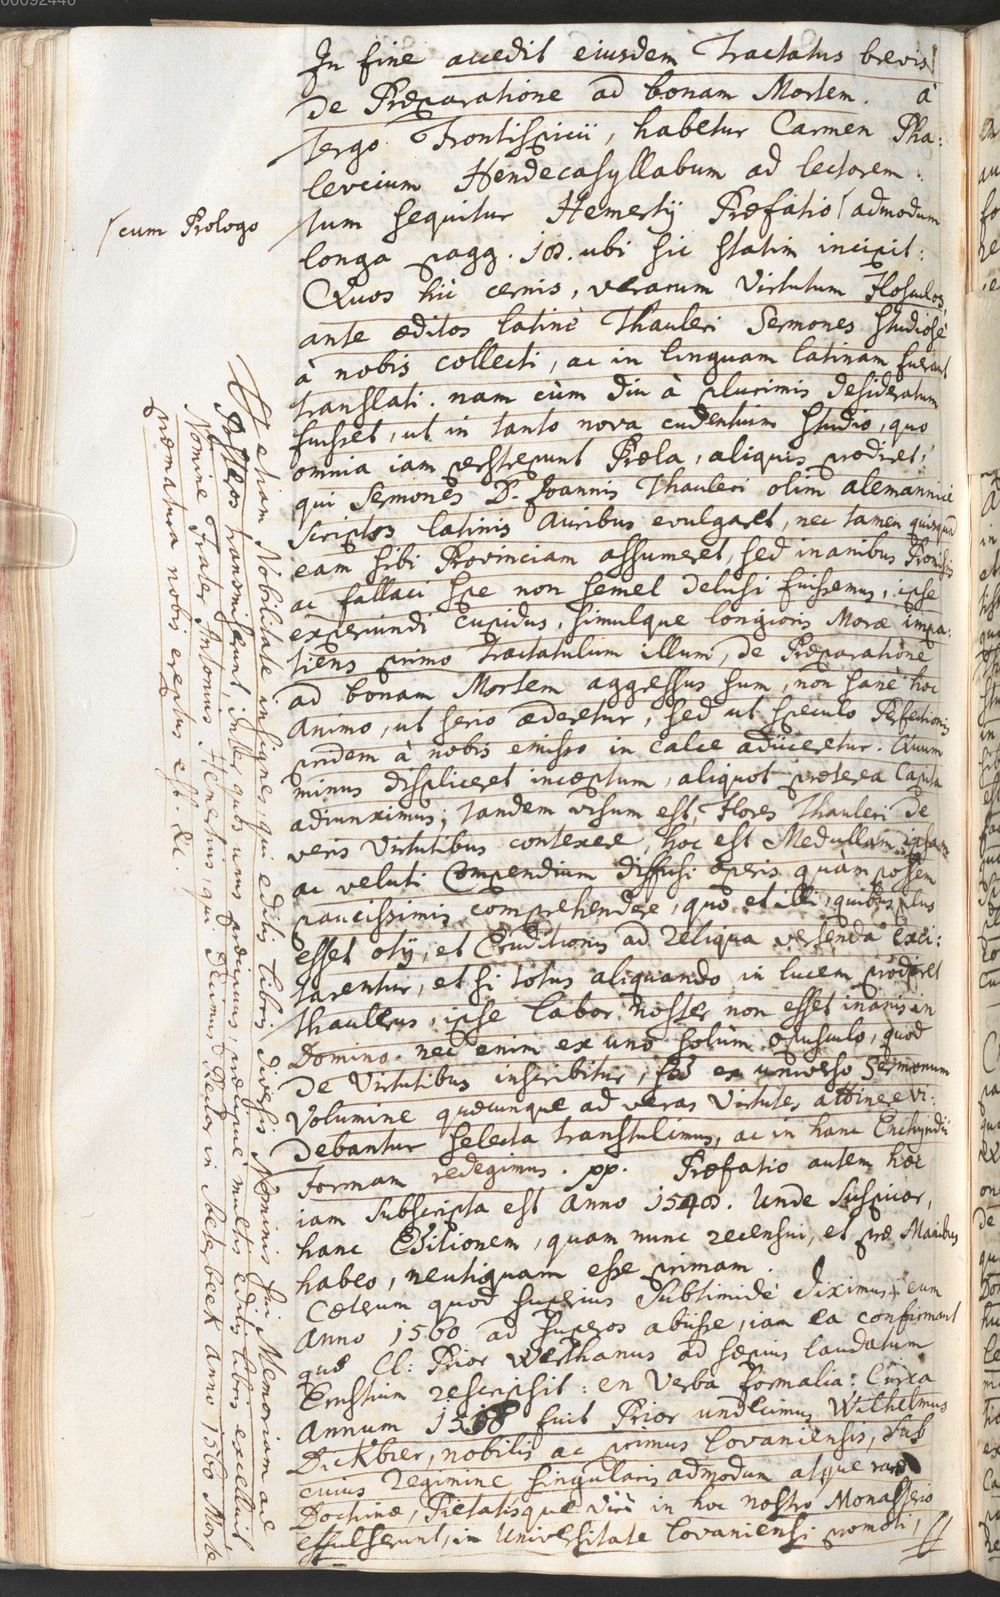 00092440
In fine accedit eiusdem Tractatus brevis
de Præparatione ad bonam Mortem. à
tergo Frontispicii, habetur Carmen Pha:
levcium Hendecasyllabum ad lectorem:
tum sequitur Hemertij Præfatio / admodum
/ cum Prologo
longa pagg. 18. ubi sic statim incipit:
Quos hic cernis, verarum Virtutum Flosculos,
ante æditos latinè Thauleri Sermones studiosè
à nobis collecti, ac in linguam latinam fuerant
translati. nam cùm diu à plurimis desideratum
fuisset, ut in tanto nova cudentium studio, quo
omnia iam perstrepunt Præla, aliquis prodiret,
qui Sermones D. Joannis Thauleri olim alemannicè
Scriptos latinis Auribus evulgaret, nec tamen quisquam
eam sibi Provinciam assumeret, sed inanibus Promissis
ac fallaci spe non semel delusi fuissemus, ipse
experiundi cupidus, simulque longioris Moræ impa:
tiens primo Tractatulum illum, de Præparatione
ad bonam Mortem aggressus sum, non sane hoc
Animo, ut serio æderetur, sed ut speculo Perfectionis
pridem à nobis emisso in calce adiiceretur. Quum
minus displiceret inceptum, aliquot præterea Capita
adiunximus; tandem visum est, Flores Thauleri de
veris Virtutibus contexere, hoc est Medullam ipsam
ac veluti Compendium diffusi operis quàm possem
paucissimis comprehendere, quò et illi, quibus plus
esset otij, et Eruditionis ad reliqua vertenda exci:
tarentur, et si totus aliquando in lucem prodiret
Thaulerus, ipse labor noster non esset inanis in
Domino. nec enim ex uno solùm opusculo, quod
de Virtutibus inscribitur, sed ex universo Sermonum
Volumine quæcunque ad veras Virtutes attinere vi:
debantur selecta transtulimus, ac in hanc Enchyridii
formam redegimus. pp. Præfatio autem hæc
iam subscripta est Anno 1548. Unde suspicor,
hanc Editionem, quam nunc recensui, et præ Manibus
habeo, neutiquam esse primam.
Cæterum quod superius subtimidè diximus, eum
Anno 1560 ad superos abiisse, iam ea confirmant
quæ Cl: Prior Werthanus ad sæpius laudatum
Ernstium rescripsit: en Verba formalia: Circa
Annum fuit Prior undecimus Wilhelmus
Dickbier, nobilis ac primus Lovaniensis, sub
cuius regimine singularis admodum atque raræ
Doctrinæ, Pietatisque viri in hoc nostro Monasterio
effulserunt, in Universitate Lovaniensi promoti,
Et etiam Nobilitate insignes, qui editis libris diversis Nominis sui Memoriam ad
Posteros transmiserunt, inter quos unus præcipuus, præcipuè multis editis libris excelluit
Nomine Frater Antonius Hemertius, qui Primus Rector in beeck anno 1560 Morte
præmatura nobis ereptus est. &c.